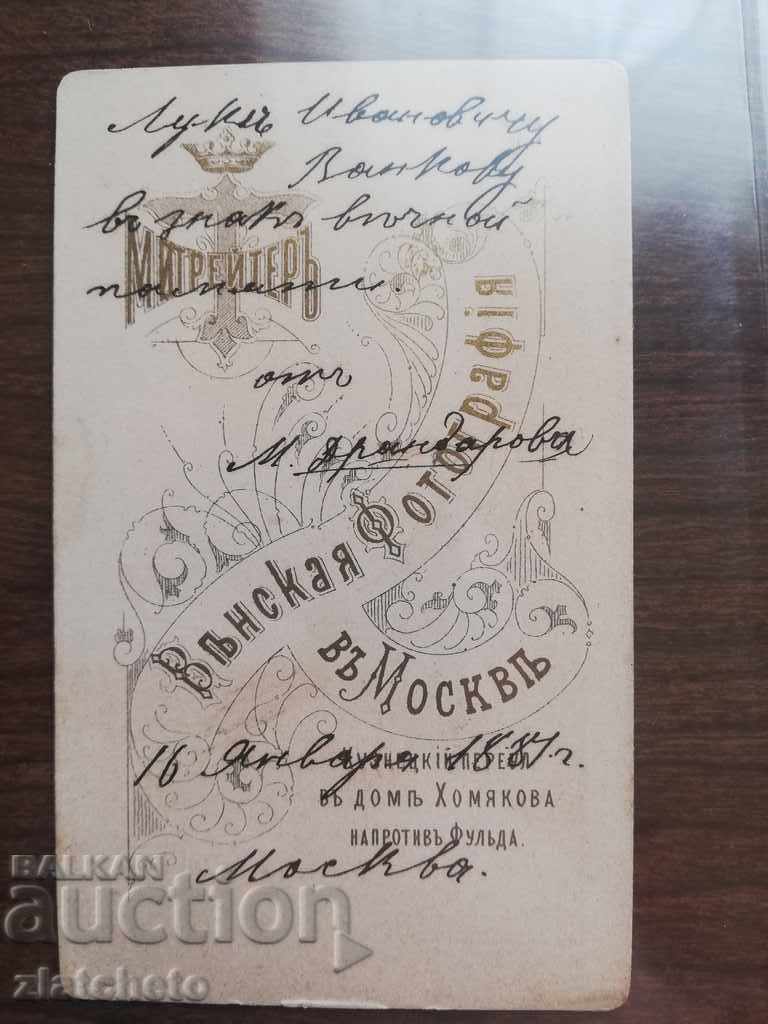 Лукѣ Ивановичу
Ванкову
въ знакъ вѣчной
МИГРЕЙТЕРЪ
памяти.
отъ
М. Драндарова
ВѢНСКАЯ ФОТОГРАФІЯ
ВЪ МОСКВѢ
16 Января 1881 г.
КУЗНЕЦКІЙ ПЕРЕУЛ
ВЪ ДОМѢ ХОМЯКОВА
НАПРОТИВЪ ФУЛЬДА.
Москва.
BALKAN
auction
zlatcheto